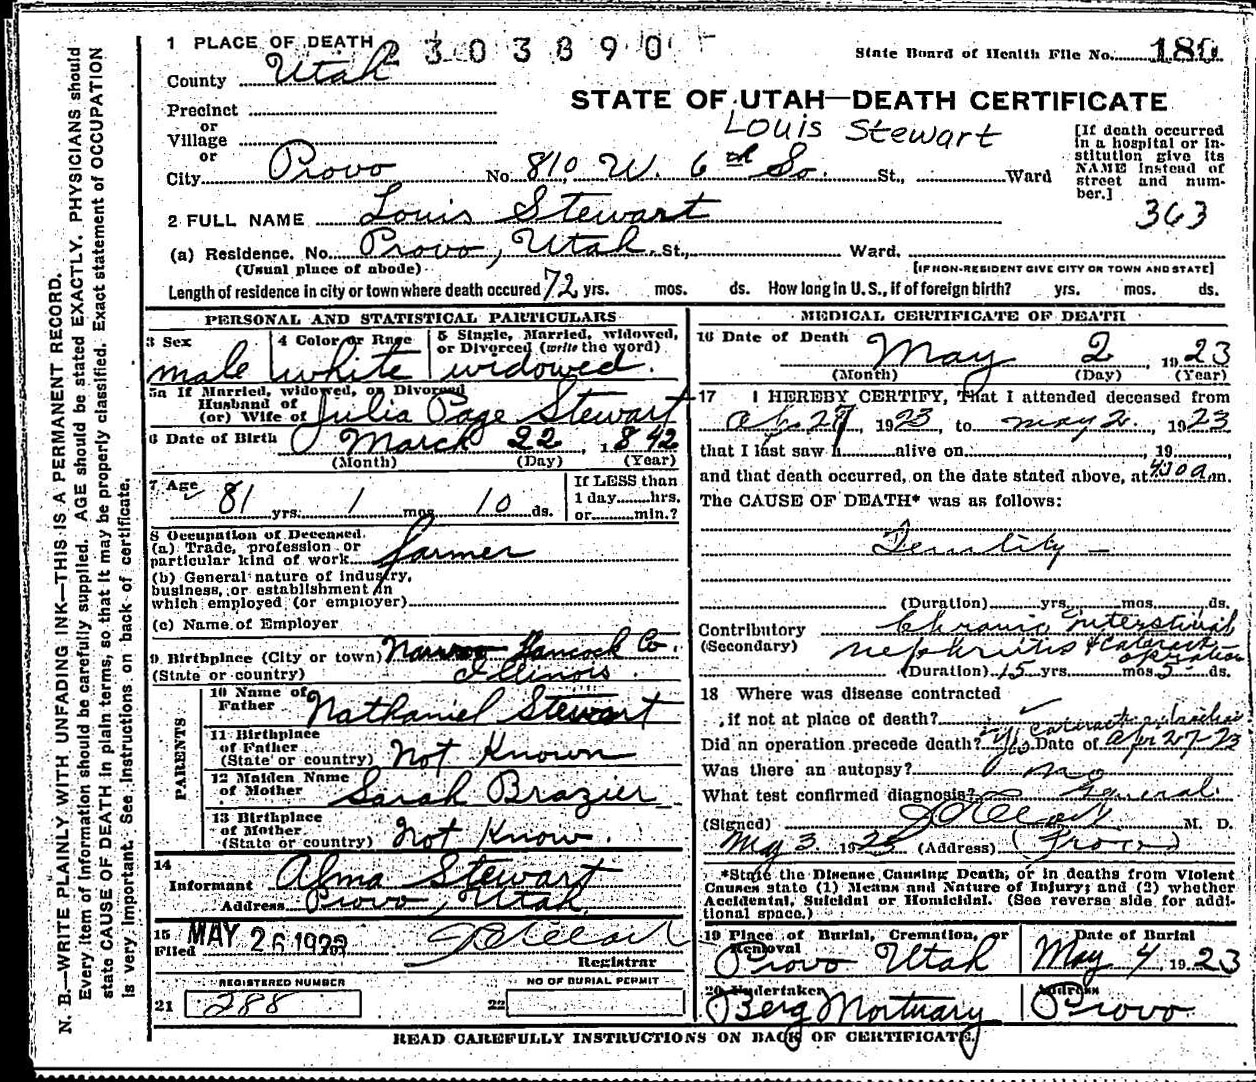 1 PLACE OF DEATH 2303890
State Board of Health File No. 180
County Utah
STATE OF UTAH—DEATH CERTIFICATE
Precinct
or
Village
or
Louis Stewart
City Provo No. 810 W. 6th So. St., Ward
[If death occurred in a hospital or institution give its NAME instead of street and number.]
363
2 FULL NAME Louis Stewart
(a) Residence. No. Provo, Utah. St., Ward.
(Usual place of abode) [IF NON-RESIDENT GIVE CITY OR TOWN AND STATE]
Length of residence in city or town where death occured 72 yrs. mos. ds. How long in U. S., if of foreign birth? yrs. mos. ds.
PERSONAL AND STATISTICAL PARTICULARS
3 Sex 4 Color or Race 5 Single, Married, widowed, or Divorced (write the word)
male white widowed.
5a If Married, widowed, or Divorced
Husband of
(or) Wife of Julia Page Stewart
6 Date of Birth March 22, 1842
(Month) (Day) (Year)
7 Age 81 yrs. 1 mos 10 ds.
If LESS than 1 day hrs. or min.?
8 Occupation of Deceased.
(a) Trade, profession or particular kind of work farmer
(b) General nature of industry, business, or establishment in which employed (or employer)
(c) Name of Employer
9 Birthplace (City or town) Hancock Co.
(State or country) Illinois
PARENTS
10 Name of Father Nathaniel Stewart
11 Birthplace of Father (State or country) Not Known
12 Maiden Name of Mother Sarah Brazier
13 Birthplace of Mother (State or country) Not Know.
14
Informant Alma Stewart
Address Provo, Utah
15 Filed MAY 26 1923
Registrar
REGISTERED NUMBER
21 288
NO OF BURIAL PERMIT
22
MEDICAL CERTIFICATE OF DEATH
16 Date of Death May 2 1923
(Month) (Day) (Year)
17 I HEREBY CERTIFY, That I attended deceased from
Apr 27, 1923, to May 2, 1923
that I last saw h alive on, 19
and that death occurred, on the date stated above, at 430 a.m.
The CAUSE OF DEATH* was as follows:
(Duration) yrs. mos. ds.
Contributory Chronic Interstitial
(Secondary) Nephritis & Cataract operation
(Duration) 15 yrs. mos 5 ds.
18 Where was disease contracted
if not at place of death?
Did an operation precede death? yes Date of Apr 27-23
Was there an autopsy? no
What test confirmed diagnosis? General
(Signed) M. D.
May 3 1923 (Address) (Provo)
*State the Disease Causing Death, or in deaths from Violent Causes state (1) Means and Nature of Injury; and (2) whether Accidental, Suicidal or Homicidal. (See reverse side for additional space.)
19 Place of Burial, Cremation, or Removal Date of Burial
Provo Utah May 4, 1923
20 Undertaker Address
Berg Mortuary Provo
READ CAREFULLY INSTRUCTIONS ON BACK OF CERTIFICATE.
N. B.—WRITE PLAINLY WITH UNFADING INK—THIS IS A PERMANENT RECORD.
Every item of information should be carefully supplied. AGE should be stated EXACTLY. PHYSICIANS should
state CAUSE OF DEATH in plain terms, so that it may be properly classified. Exact statement of OCCUPATION
is very important. See instructions on back of certificate.